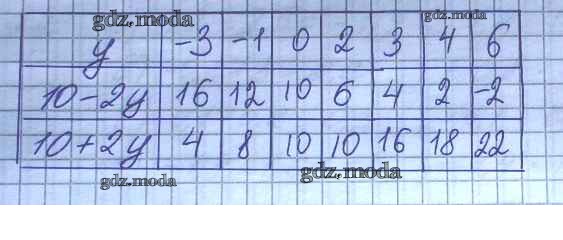 gdz.moda gdz.moda
y -3 -1 0 2 3 4 6
10-2y 16 12 10 6 4 2 -2
10+2y 4 8 10 10 16 18 22
gdz.moda gdz.moda